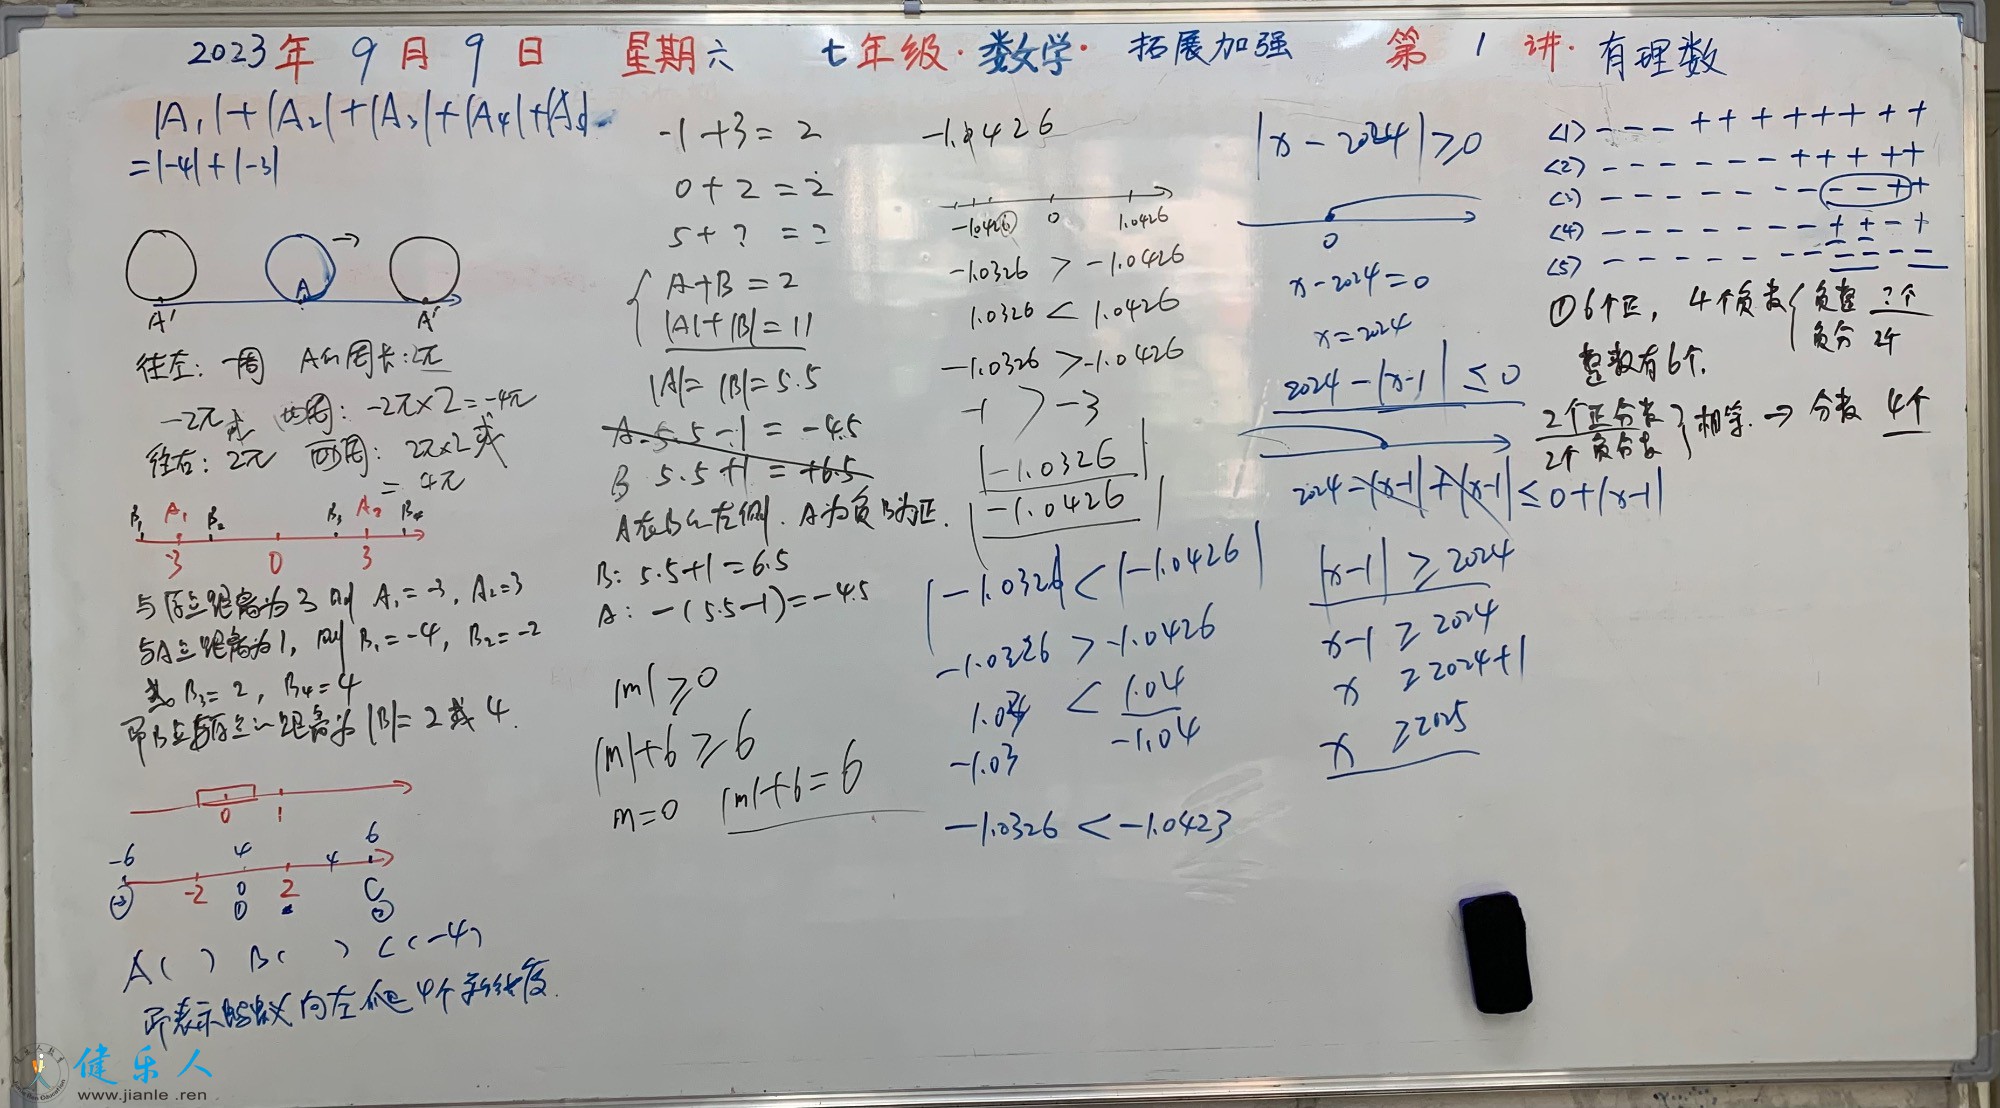 2023年 9月 9日 星期六 七年级·数学· 拓展加强 第 1 讲· 有理数
|A₁|+|A₂|+|A₃|+|A₄|+|A₅|
=|-4|+|-3|
A' A A'
往左: 一周 A的周长:2π
-2π或 两周: -2π×2=-4π
往右: 2π 两周: 2π×2或
= 4π
B₁ A₁ B₂ B₃ A₂ B₄
-3 0 3
与原点距离为3则 A₁=-3, A₂=3
与A点距离为1, 则 B₁=-4, B₂=-2
或 B₃=2, B₄=4
即B点与原点的距离为|B|=2或4.
0 1
-6 4 4 6
-2 0 2 C
① ②
A( ) B( ) C(-4)
即表示蚂蚁向左爬4个单位长度.
-1+3=2
0+2=2
5+?=?
A+B=2
|A|+|B|=11
|A|=|B|=5.5
A 5.5-1=-4.5
B 5.5+1=+6.5
A在B的左侧. A为负B为正.
B: 5.5+1=6.5
A: -(5.5-1)=-4.5
|m|≥0
|m|+6≥6
m=0 |m|+6=6
-1.0426
-1.0426 0 1.0426
-1.0326 > -1.0426
1.0326 < 1.0426
-1.0326 > -1.0426
-1 > -3
|-1.0326|
|-1.0426|
|-1.0326|<|-1.0426|
-1.0326 > -1.0426
1.03 < 1.04
-1.03 -1.04
-1.0326 < -1.0423
|x-2024|≥0
0
x-2024=0
x=2024
2024-|x-1|≤0
2024-|x-1|+|x-1|≤0+|x-1|
|x-1|≥2024
x-1≥2024
x ≥2024+1
x ≥2025
<1> - - - + + + + + + + +
<2> - - - - - - + + + + +
<3> - - - - - - - - - + +
<4> - - - - - - - + + - +
<5> - - - - - - - - - - -
①6个正, 4个负数 负整 ?个
负分 2个
整数有6个.
2个正分数
2个负分数 相等 → 分数 4个
健乐人
www.jianle.ren